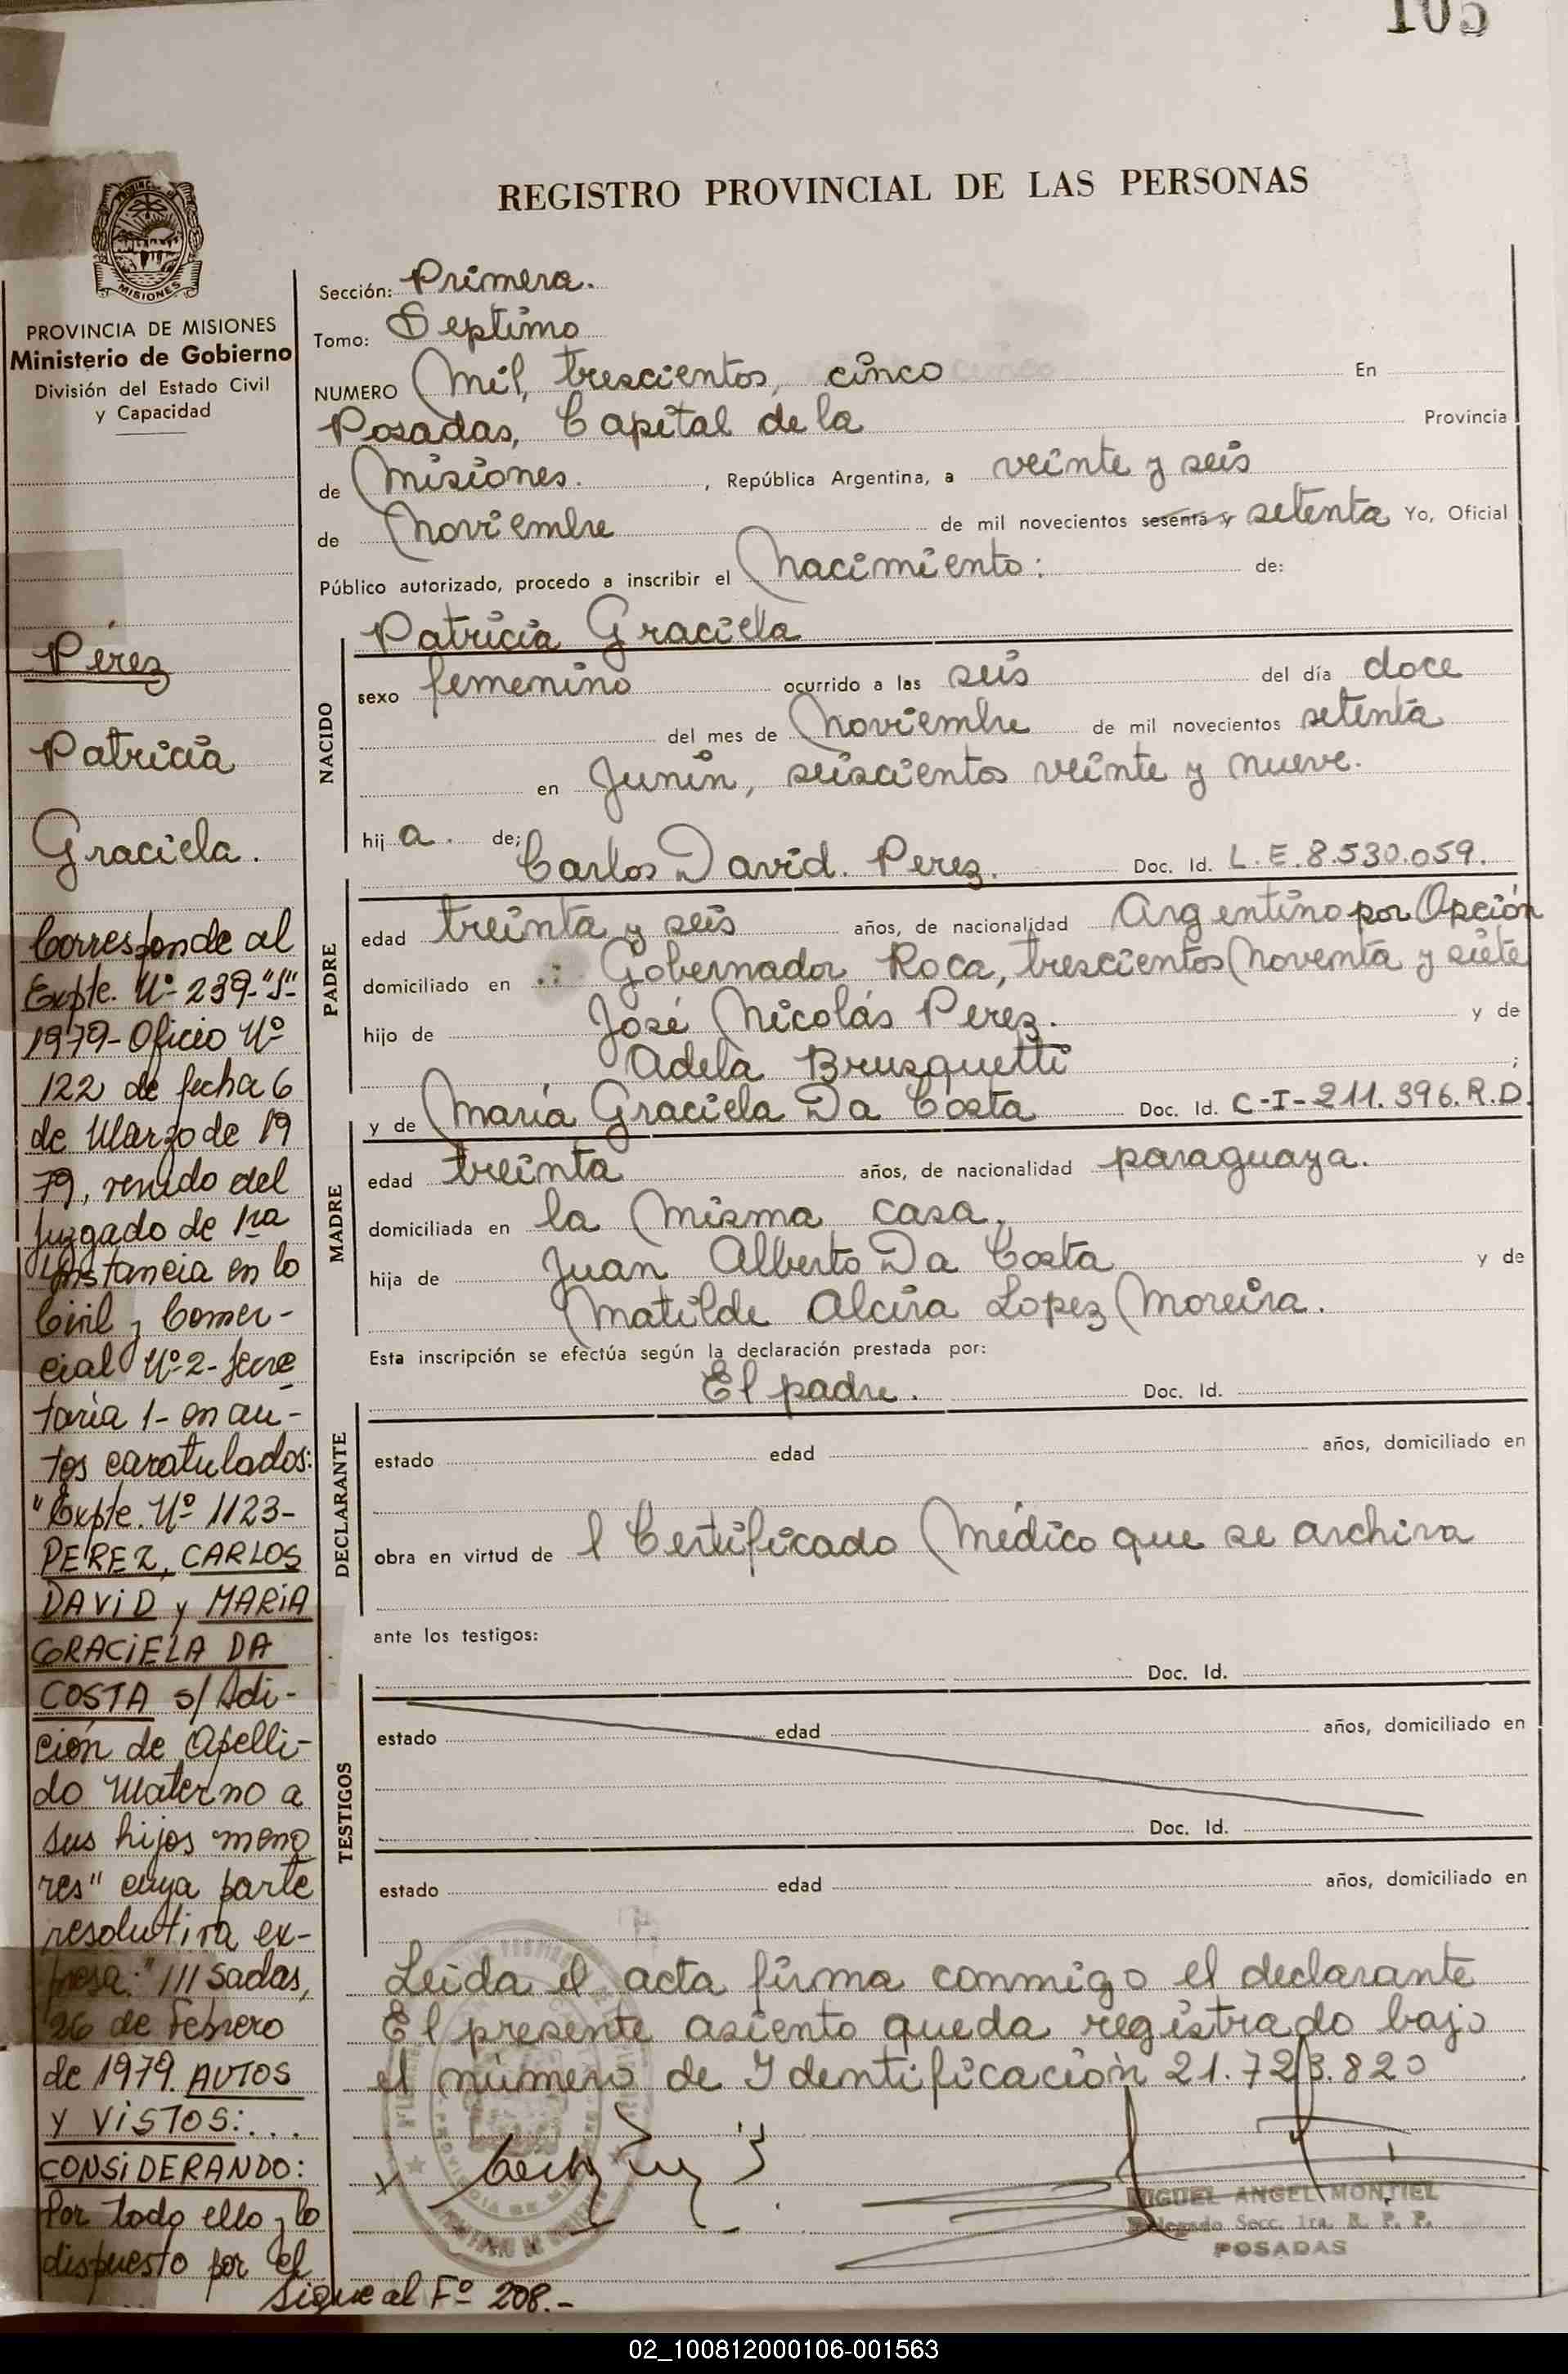 105
REGISTRO PROVINCIAL DE LAS PERSONAS
MISIONES
PROVINCIA DE MISIONES
Ministerio de Gobierno
División del Estado Civil
y Capacidad
Pérez
Patricia
Graciela.
Corresponde al
Expte. Nº 239-"J"-
1979- Oficio Nº
122 de fecha 6
de Marzo de 19
79, venido del
Juzgado de 1ra
Instancia en lo
Civil y Comer-
cial Nº 2- Secre
taría 1- en au-
tos caratulados:
"Expte. Nº 1123-
PEREZ, CARLOS
DAVID y MARIA
GRACIELA DA
COSTA s/ Adi-
ción de Apelli-
do Materno a
sus hijos meno
res" cuya parte
resolutiva ex-
presa: "///sadas,
26 de Febrero
de 1979. AUTOS
Y VISTOS:...
CONSIDERANDO:
Por todo ello y lo
dispuesto por el
Sigue al Fº 208.-
Sección: Primera.
Tomo: Septimo
NUMERO Mil, trescientos, cinco En
Posadas, Capital de la Provincia
de Misiones. , República Argentina, a veinte y seis
de Noviembre de mil novecientos sesenta y setenta Yo, Oficial
Público autorizado, procedo a inscribir el Nacimiento: de:
Patricia Graciela
NACIDO
sexo femenino ocurrido a las seis del día doce
del mes de Noviembre de mil novecientos setenta
en Junín, seiscientos veinte y nueve.
hij a. de;
Carlos David. Perez. Doc. Id. L.E.8.530.059.
PADRE
edad treinta y seis años, de nacionalidad Argentino por Opción
domiciliado en Gobernador Roca, trescientos Noventa y siete
hijo de José Nicolás Perez. y de
Adela Brusquetti ;
y de María Graciela Da Costa Doc. Id. C-I-211.396.R.D.
MADRE
edad treinta años, de nacionalidad paraguaya.
domiciliada en la misma casa.
hija de Juan Alberto Da Costa y de
Matilde Alcira Lopez Moreira.
Esta inscripción se efectúa según la declaración prestada por:
El padre. Doc. Id.
DECLARANTE
estado edad años, domiciliado en
obra en virtud de l Certificado Médico que se archiva
ante los testigos:
Doc. Id.
TESTIGOS
estado edad años, domiciliado en
Doc. Id.
estado edad años, domiciliado en
Leida el acta firma conmigo el declarante
El presente asiento queda registrado bajo
el número de Identificación 21.723.820
MIGUEL ANGEL MONTIEL
Delegado Secc. 1ra. R. P. P.
POSADAS
02_100812000106-001563